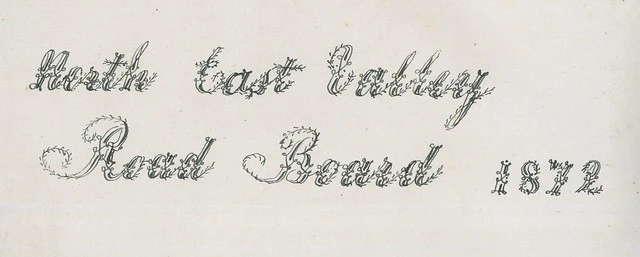 North East Valley
Road Board 1872